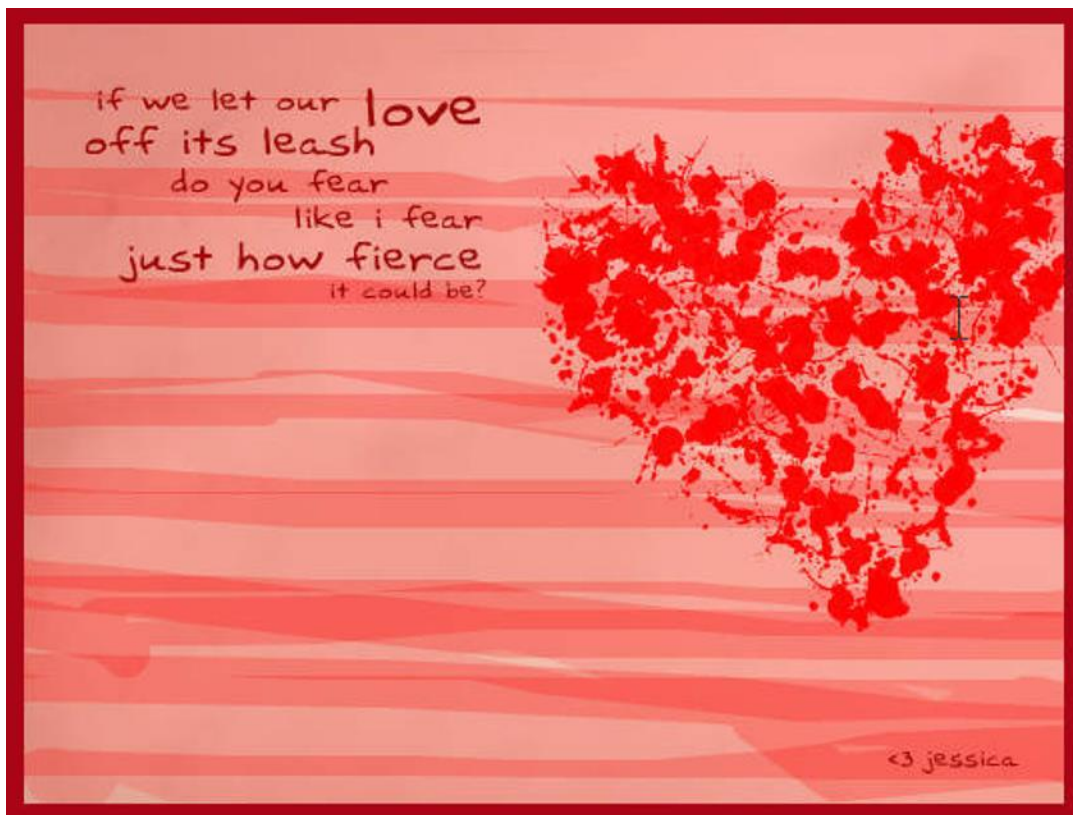 if we let our love
off its leash
do you fear
like i fear
just how fierce
it could be?
<3 jessica